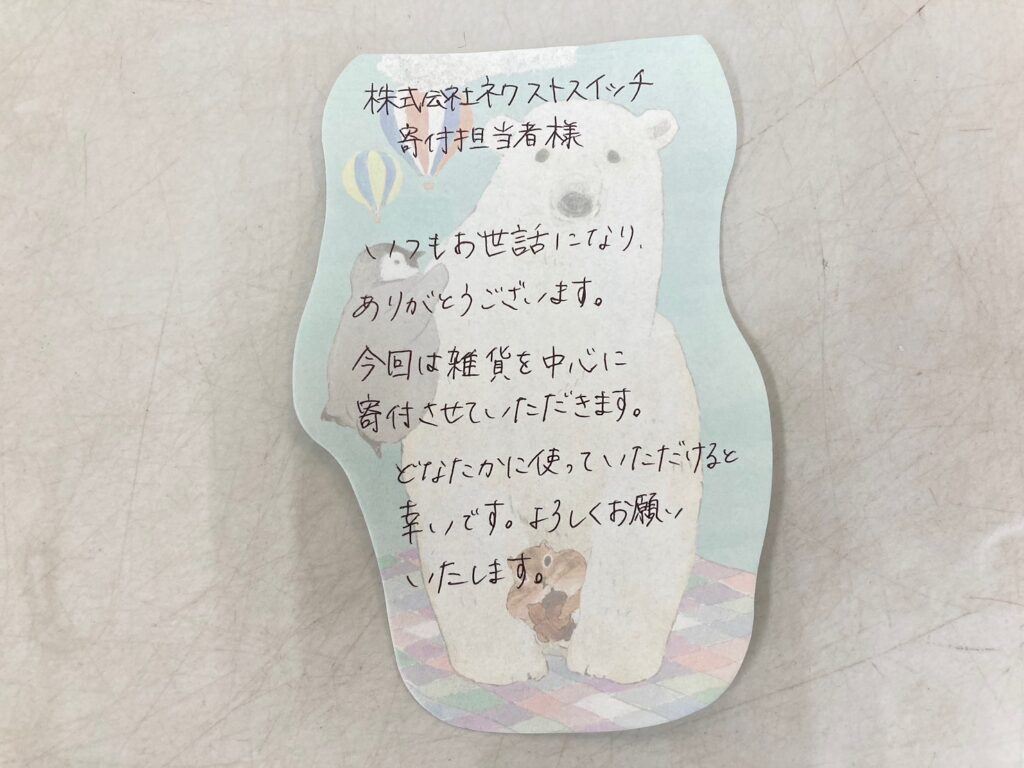 株式会社ネクストスイッチ
寄付担当者様
いつもお世話になり、
ありがとうございます。
今回は雑貨を中心に
寄付させていただきます。
どなたかに使っていただけると
幸いです。よろしくお願い
いたします。